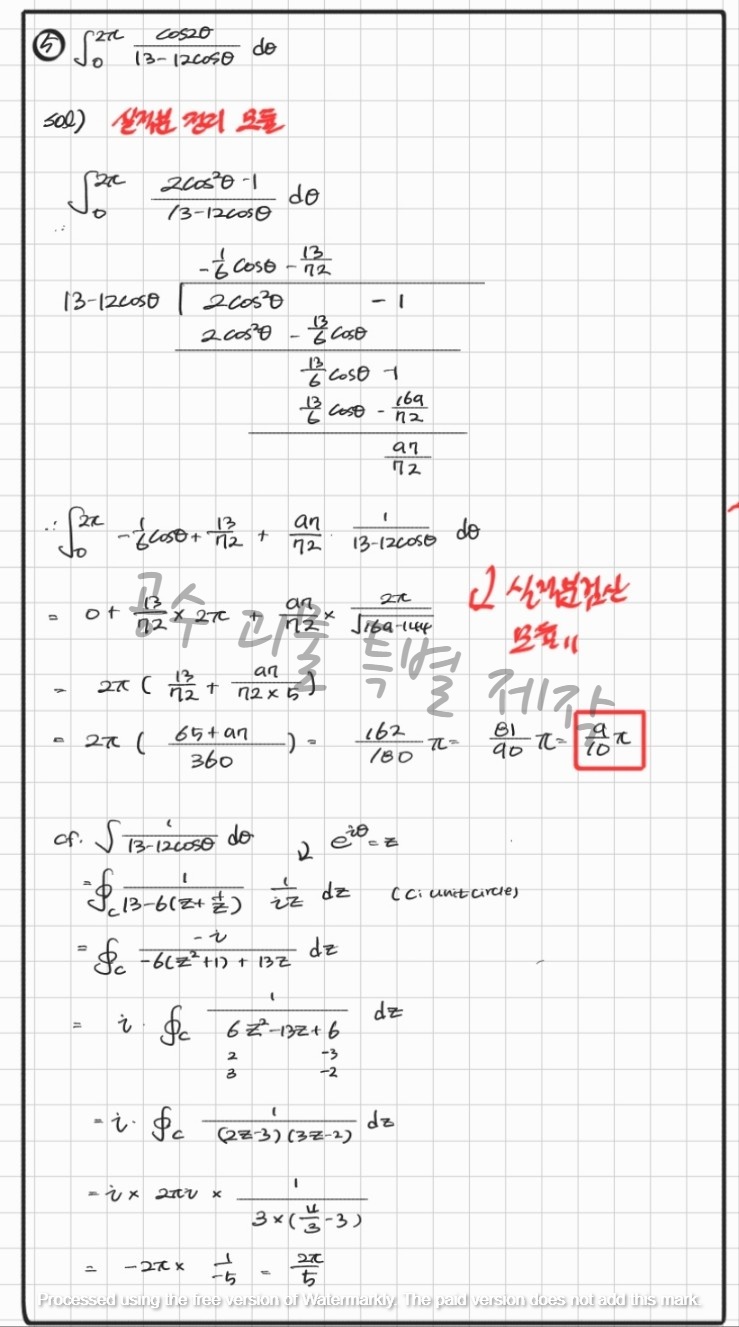 ⑤ ∫₀^{2π} cos2θ / (13-12cosθ) dθ
sol) 실적분 정리 모듈
∫₀^{2π} (2cos²θ-1) / (13-12cosθ) dθ
-1/6 cosθ - 13/72
13-12cosθ ) 2cos²θ - 1
2cos²θ - 13/6 cosθ
13/6 cosθ - 1
13/6 cosθ - 169/72
97/72
∴ ∫₀^{2π} -1/6 cosθ + 13/72 + 97/72 · 1/(13-12cosθ) dθ
= 0 + 13/72 × 2π + 97/72 × 2π/√(169-144)
실적분검산
모듈 〃
= 2π ( 13/72 + 97/(72×5) )
= 2π ( (65+97)/360 ) = 162/180 π = 81/90 π = 9/10 π
공수 괴물 특별 제작
cf. ∫ 1/(13-12cosθ) dθ ↓ e^{iθ}=z
= ∮_C 1/(13-6(z+1/z)) 1/(iz) dz (C: unit circle)
= ∮_C -i/(-6(z²+1)+13z) dz
= i · ∮_C 1/(6z²-13z+6) dz
2 -3
3 -2
= i · ∮_C 1/((2z-3)(3z-2)) dz
= i × 2πi × 1/(3×(4/3-3))
= -2π × 1/-5 = 2π/5
Processed using the free version of Watermarkly. The paid version does not add this mark.